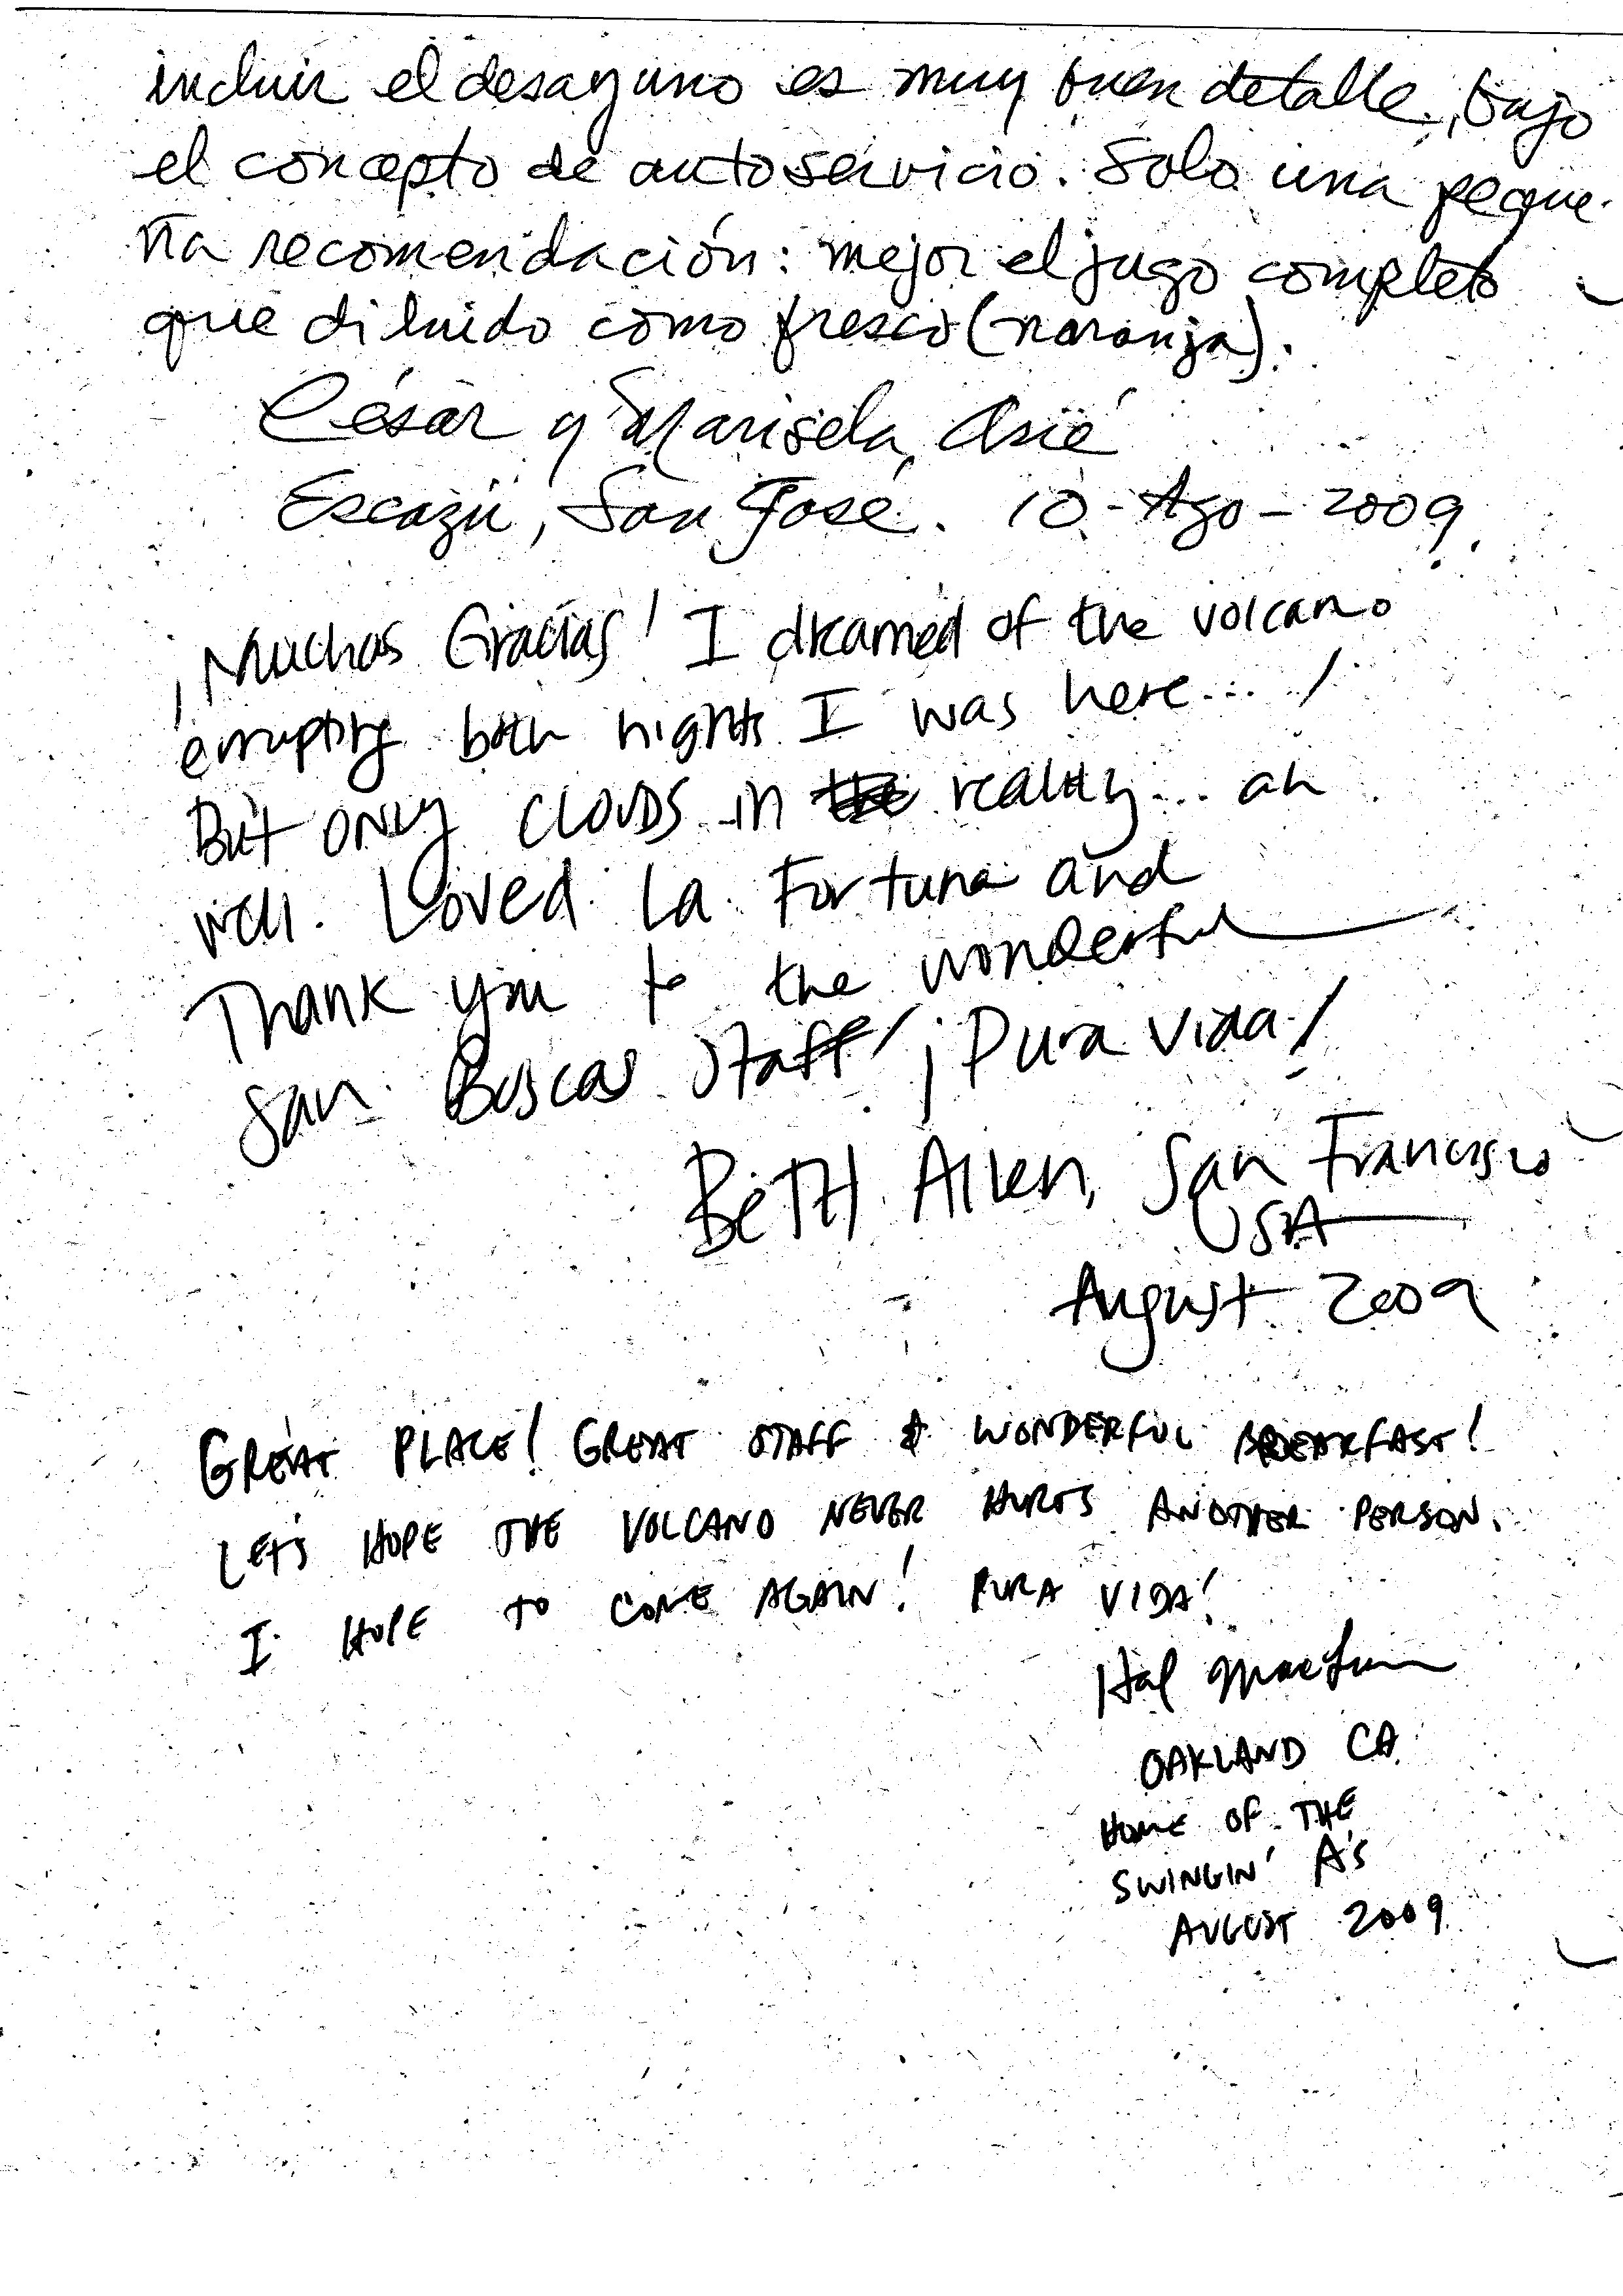 incluir el desayuno es muy buen detalle, bajo
el concepto de autoservicio. Solo una peque-
ña recomendación: mejor el jugo completo
que diluido como fresco (naranja).
César y Marisela
Escazú, San José. 10-Ago-2009
¡Muchas Gracias! I dreamed of the volcano
errupting both nights I was here...!
But ONLY CLOUDS in reality... ah
well. Loved La Fortuna and
Thank you to the wonderful
San Boscas staff! ¡Pura Vida!
BETH Aiken, San Francisco
USA
August 2009
GREAT PLACE! GREAT STAFF & WONDERFUL BREAKFAST!
LET'S HOPE THE VOLCANO NEVER HURTS ANOTHER PERSON.
I HOPE TO COME AGAIN! PURA VIDA!
Hal
OAKLAND CA
HOME OF THE
SWINGIN' A'S
AUGUST 2009